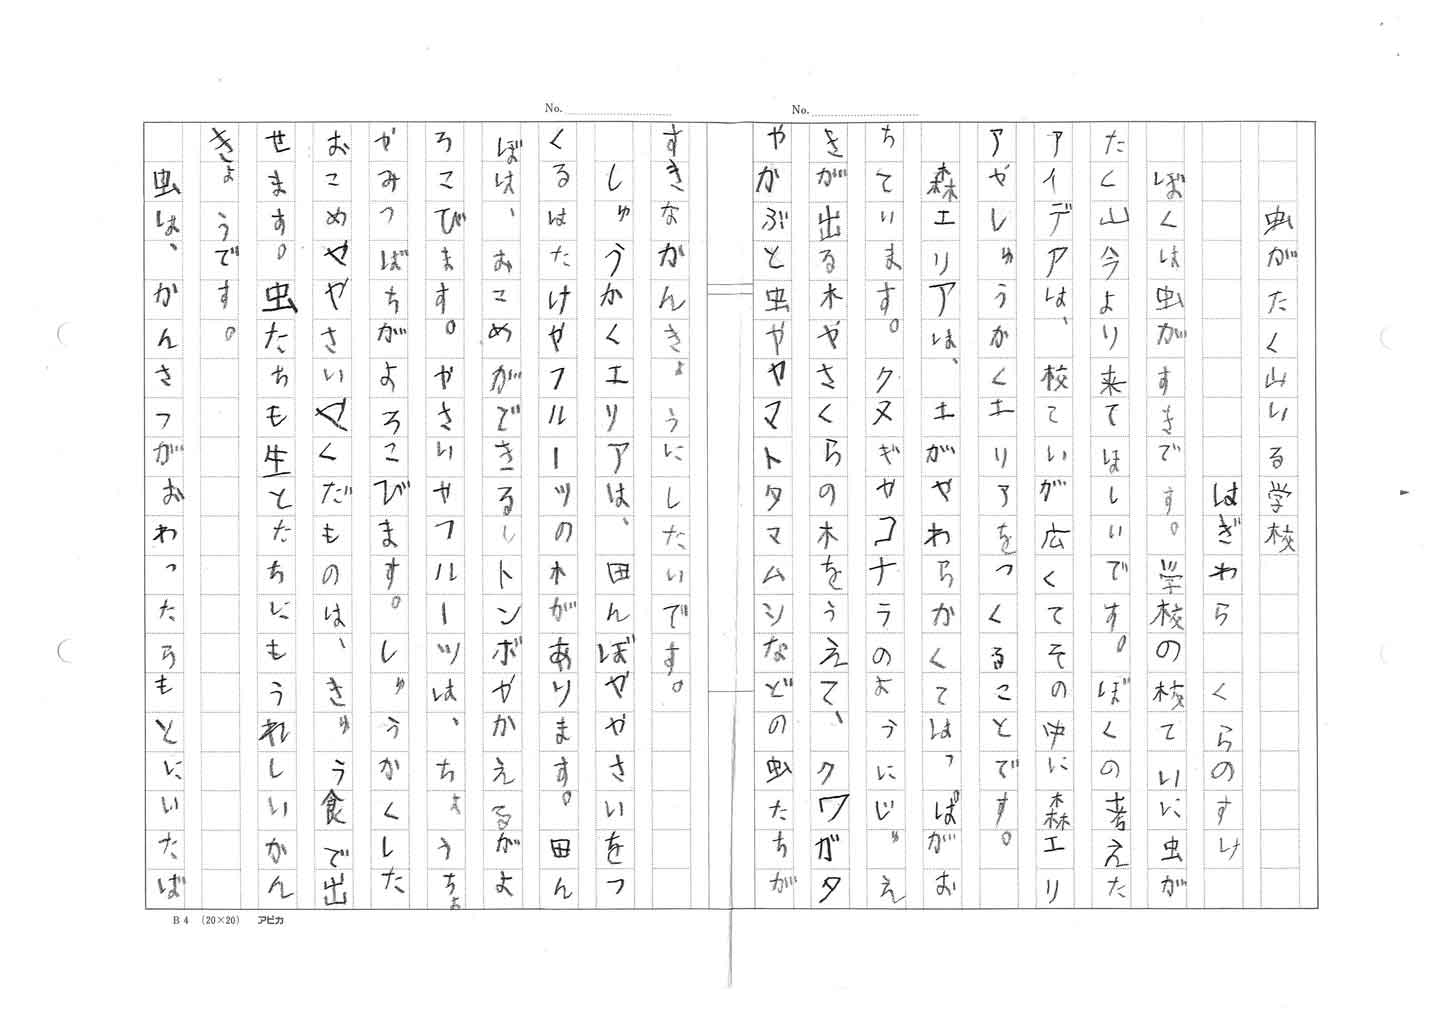 No.
No.
虫がたく山いる学校
はぎわら くらのすけ
ぼくは虫がすきです。学校の校ていに虫が
たく山今より来てほしいです。ぼくの考えた
アイデアは、校ていが広くてその中に森エリ
アやしゅうかくエリアをつくることです。
森エリアは、土がやわらかくてはっぱがお
ちています。クヌギやコナラのようにじゅえ
きが出る木やさくらの木をうえて、クワガタ
やかぶと虫ややマトタマムシなどの虫たちが
すきなかんきょうにしたいです。
しゅうかくエリアは、田んぼややさいをつ
くるはたけやフルーツの木があります。田ん
ぼは、おこめができるしトンボやかえるがよ
ろこびます。やさいやフルーツは、ちょうちょ
かみつばちがよろこびます。しゅうかくした
おこめややさいやくだものは、きゅう食で出
せます。虫たちも生とたちにもうれしいかん
きょうです。
虫は、かんさつがおわったらもとにいたば
B4 (20×20) アピカ